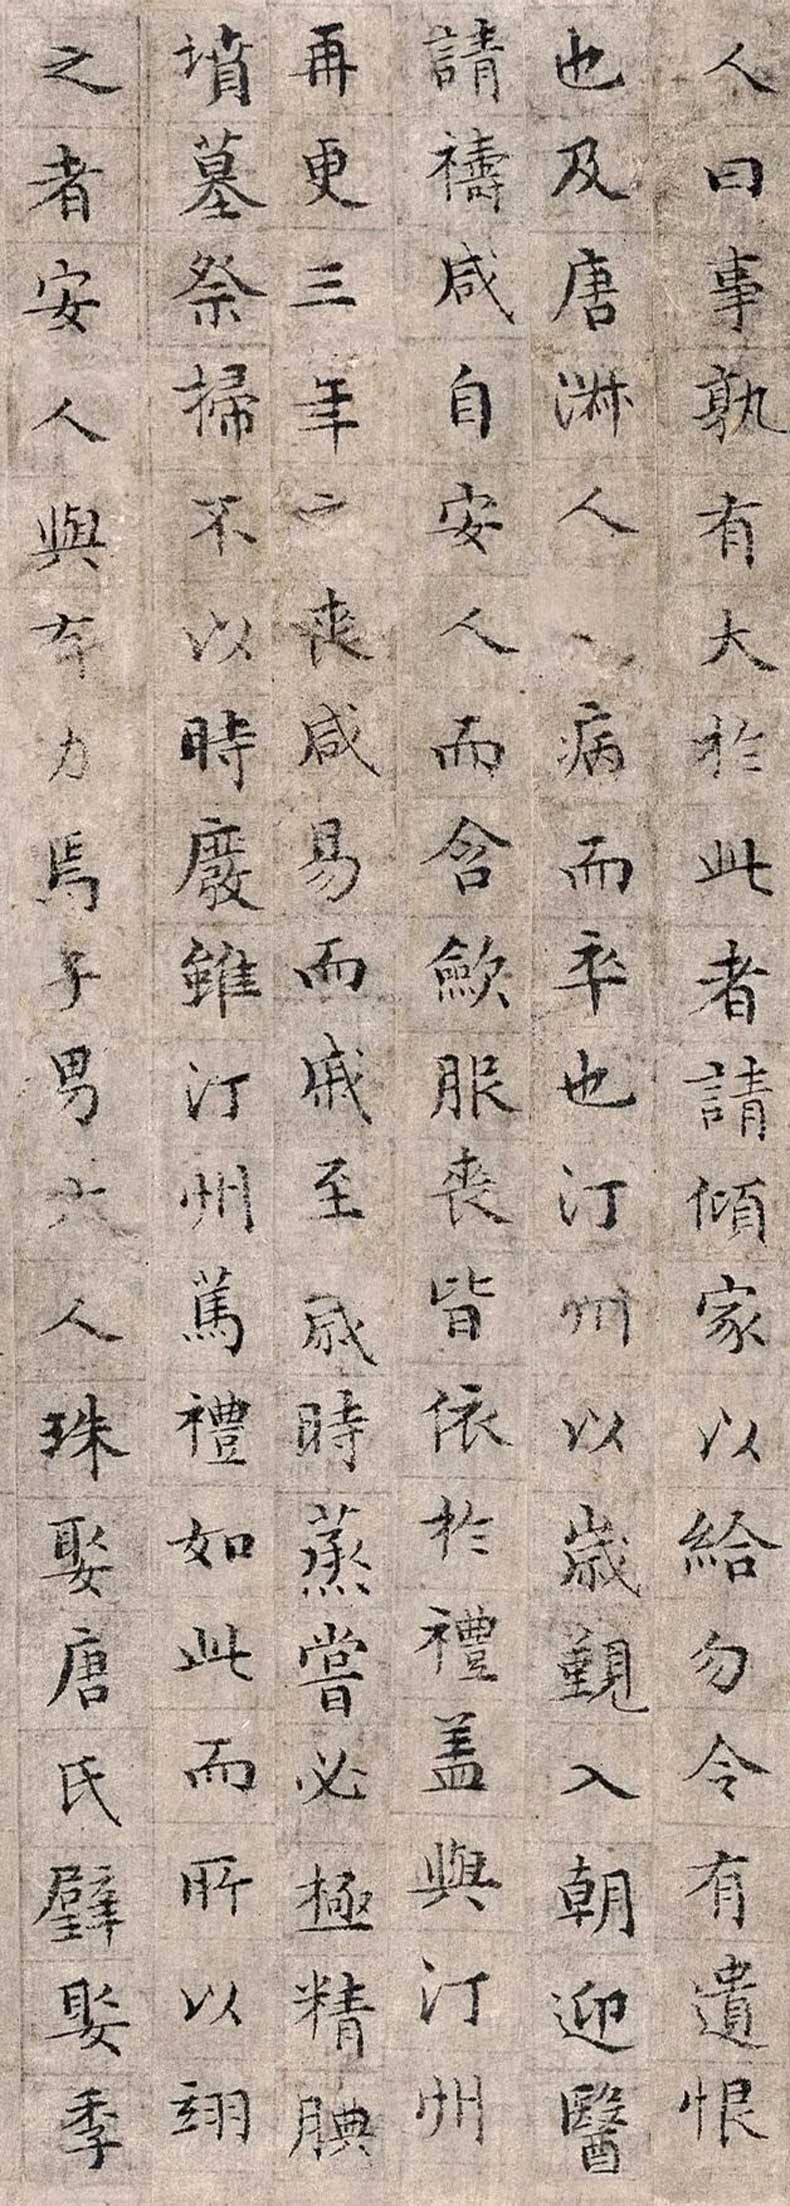 人曰事孰有大於此者請傾家以給勿令有遺恨
也及唐淋人病而卒也汀州以歲覲入朝迎醫
請禱咸自安人而含歛服喪皆依於禮盖與汀州
再更三年喪咸易而戚至歲時蒸嘗必極精腆
墳墓祭掃不以時廢雖汀州篤禮如此而所以翊
之者安人與有力焉子男六人珠娶唐氏璧娶季